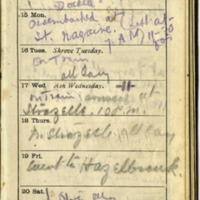 15 Mon.
Disembarked at
St. Nazaire. 7 A.M. 11-30
16 Tues. Shrove Tuesday.
On Train
all day
17 Wed. Ash Wednesday. -11-
In train, arrived at
Strazelle. 10 P.M.
18 Thurs.
In Strazelle, all day
19 Fri.
Went to Hazelbrouck.
20 Sat.